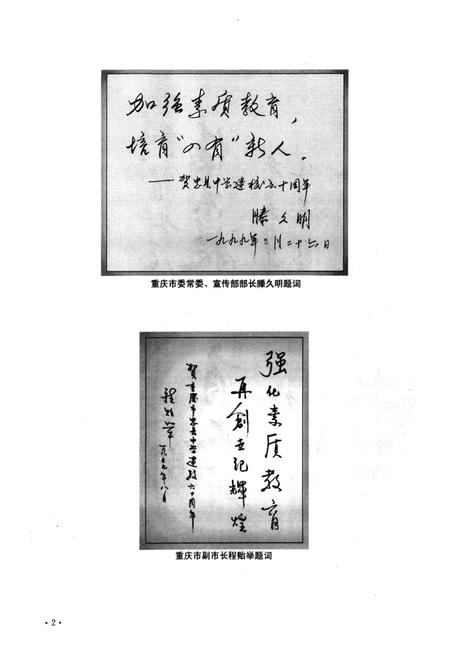 加强素质教育，
培育“四有”新人。
——贺忠县中学建校六十周年
滕久明
一九九九年三月二十六日
重庆市委常委、宣传部部长滕久明题词
强化素质教育
再创世纪辉煌
贺重庆市忠县中学建校六十周年
程贻举
一九九九年八月
重庆市副市长程贻举题词
·2·